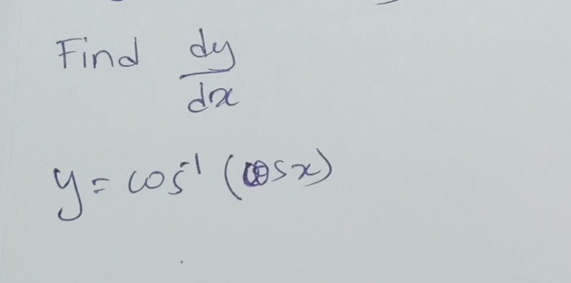 Find dy/dx
y = cos⁻¹ (cosx)